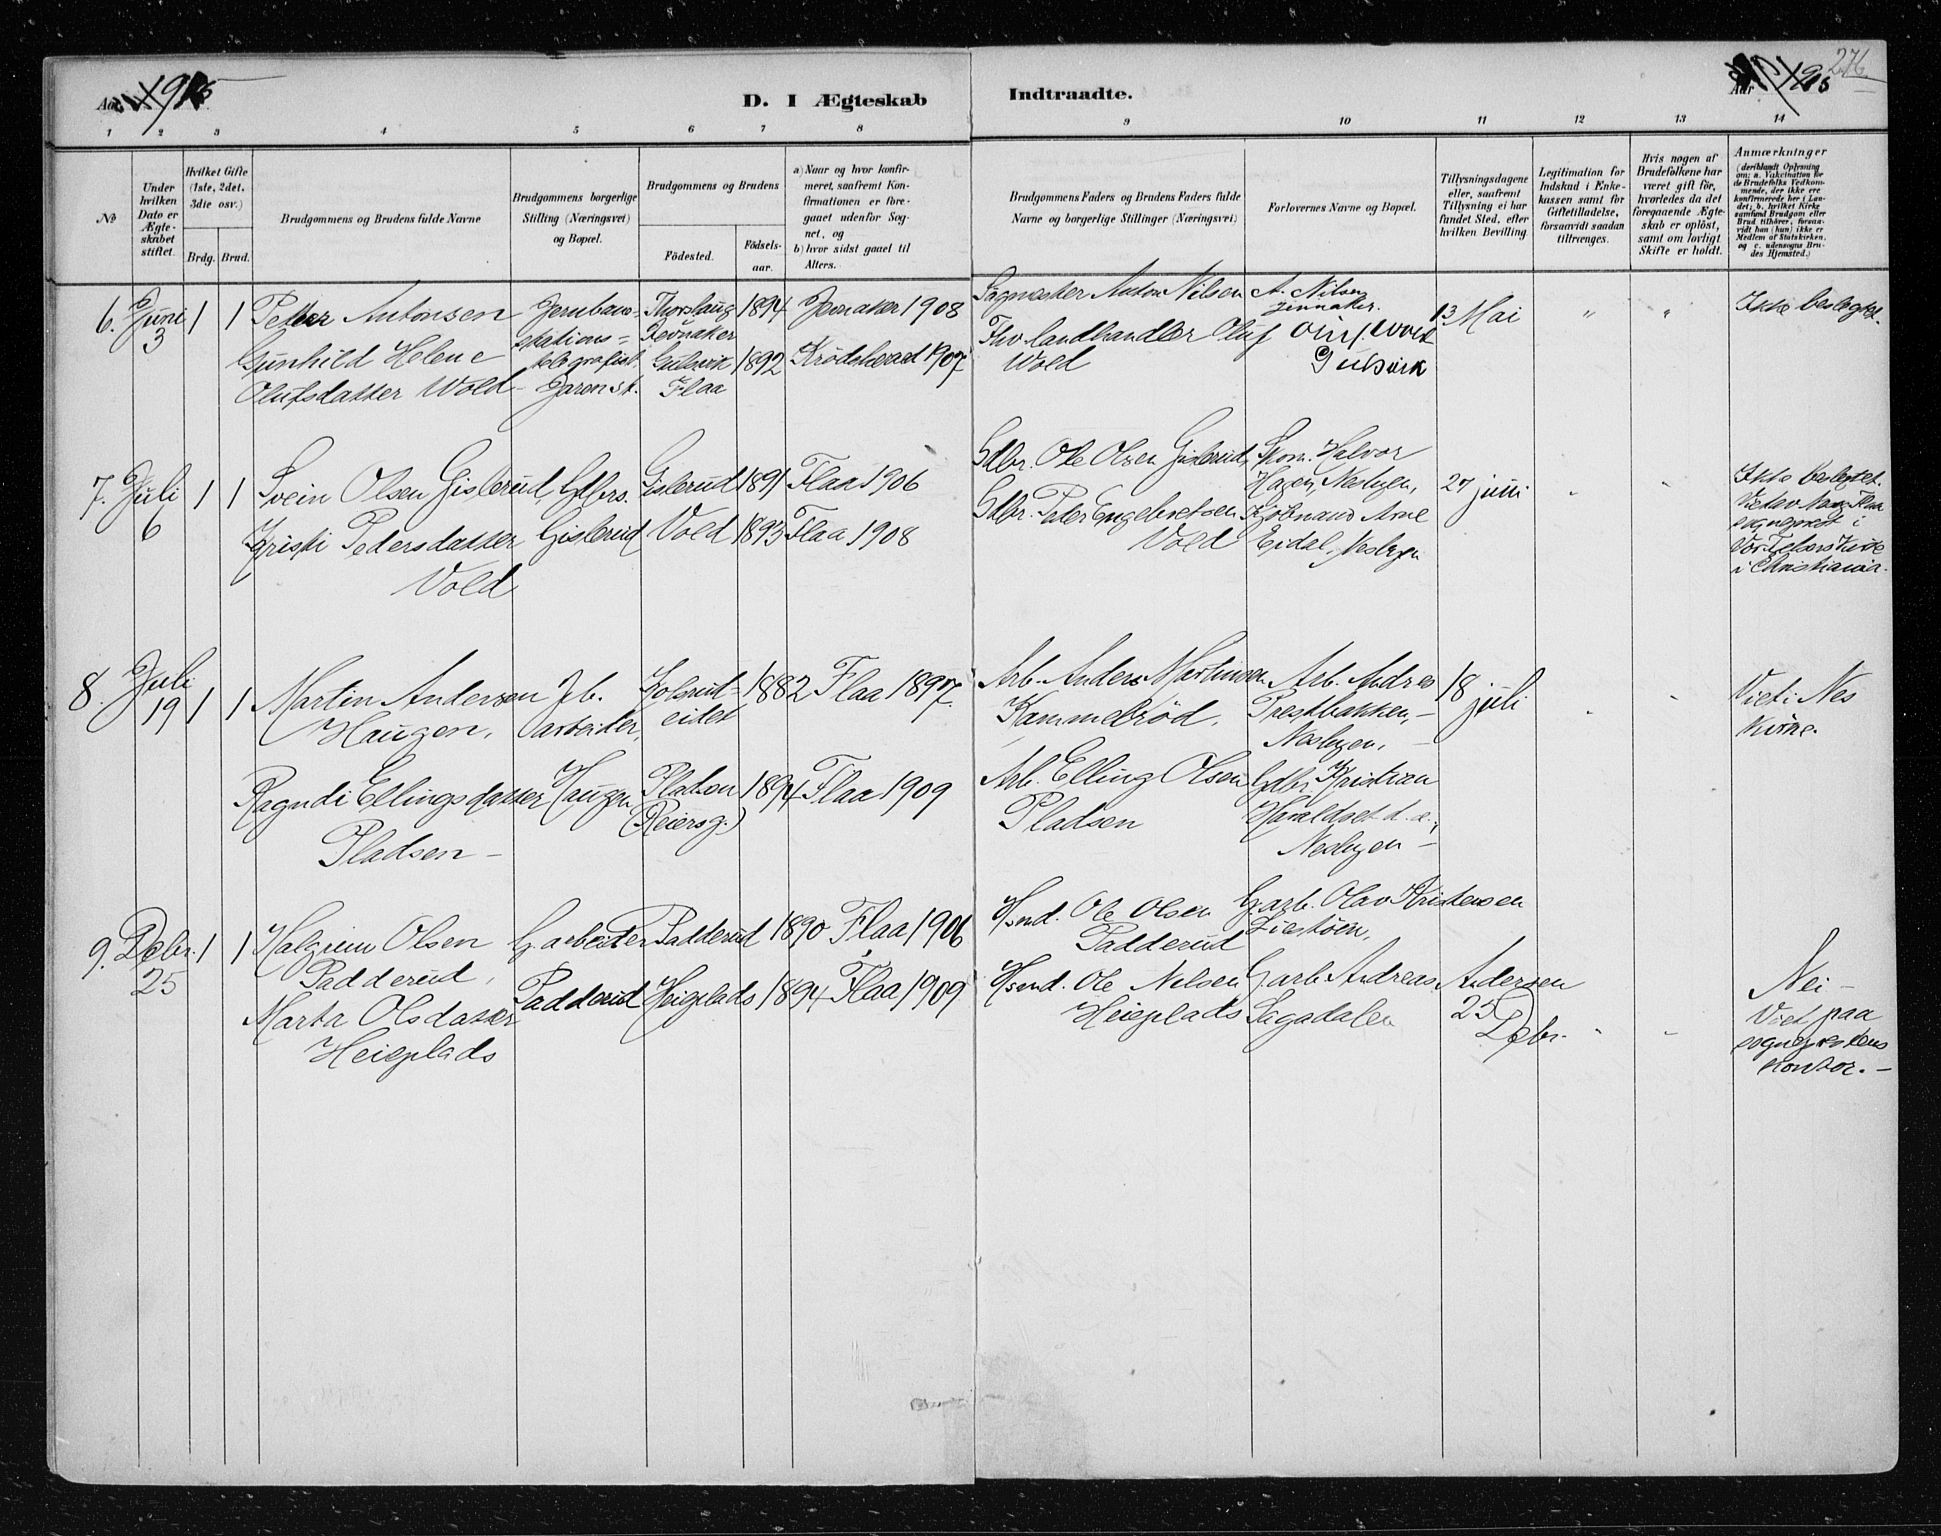 Aar 1915
D. I Ægteskab Indtraadte.
Aar 1915
276
1 2 3 4 5 6 7 8 9 10 11 12 13 14
No
Under hvilken Dato er Ægteskabet stiftet
Hvilket Gifte (1ste, 2det, 3die osv.)
Brdg. Brud.
Brudgommens og Brudens fulde Navne
Brudgommens borgerlige Stilling (Næringsvei) og Bopæl.
Brudgommens og Brudens
Födested.
Födselsaar.
a) Naar og hvor konfirmeret, saafremt Konfirmationen er foregaaet udenfor Sognet, og
b) hvor sidst gaaet til Alters.
Brudgommens Faders og Brudens Faders fulde Navne og borgerlige Stillinger (Næringsvei)
Forlovernes Navne og Bopæl.
Tillysningsdagene eller, saafremt Tillysning ei har fundet Sted, efter hvilken Bevilling
Legitimation for Indskud i Enkekassen samt for Giftetilladelse, forsaavidt saadan tiltrænges.
Hvis nogen af Brudefolkene har været gift för, hvorledes da det foregaaende Ægteskab er oplöst, samt om lovligt Skifte er holdt.
Anmærkninger (deriblandt Oplysning om: a. Vakcination for de Brudefolks Vedkommende, der ikke ere konfirmerede her i Landet; b. hvilket Kirkesamfund Brudgom eller Brud tilhörer, forsaavidt han (hun) ikke er Medlem af Statskirken, og c. udensogns Brudes Hjemsted.)
6. Juni 3 1 1 Petter Antonsen
Jernbanestations=telegrafist Jaren st.
Thorslaug Jevnaker 1894 Jevnaker 1908
Sagmester Anton Nilsen
A. Nilsen Jevnaker.
13 Mai " "
Ikke beslegtet.
Gunhild Helene Olufsdatter Wold
Gulsvik Flaa 1892 Krödsherad 1907
Fhv. landhandler Oluf Wold
Oluf Wold Gulsvik
7. Juli 6 1 1 Svein Olsen Gislerud, Gdbrs.
Gislerud 1891 Flaa 1906
Gdbr. Ole Olsen Gislerud,
Skom. Halvor Hagen, Nesbyen,
27 juni " "
Ikke beslegtet.
Viet av Nes & Flaa sogneprest i Vor Frelsers Kirke i Christiania.
Kristi Pedersdatter Vold
Gislerud Vold 1893 Flaa 1908
Gdbr. Peter Engebretsen Vold
Kjöbmand Arne Eidal, Nesbyen
8. Juli 19 1 1 Martin Andersen Haugen,
Jb. arbeider,
Kolsrudeidet 1882 Flaa 1897.
Arb. Anders Martinsen Kammebröd,
Arb. Andres Prestbakken, Nesbyen,
18 juli " "
Viet i Nes Kirke.
Ragndi Ellingsdatter Pladsen
Haugen
Pladsen (Reiersg.) 1894 Flaa 1909
Arb. Elling Olsen Pladsen
Gdbr. Kristian Haraldset d. e., Nesbyen
9. Debr. 25 1 1 Halgrim Olsen Padderud,
G. arbeider Padderud
Padderud 1890 Flaa 1906
Hsmd. Ole Olsen Padderud
G. arb. Olav Kristensen Liestöen,
Marta Olsdatter Heieplads
Heieplads 1894 Flaa 1909
Hsmd. Ole Nilsen Heieplads
G. arb. Andreas Andersen Sagadalen
25 Debr. " "
Nei –
Viet paa sogneprestens kontor. –